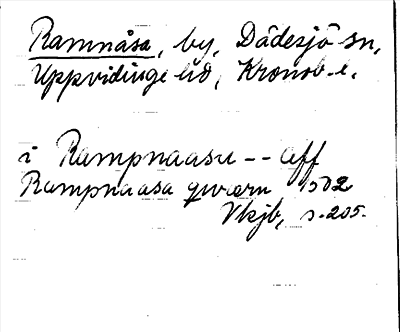 Ramnåsa, by, Dädesjö sn,
Uppvidinge hd, Kronob. l.
i Rampnaasu -- aff
Rampnaasa qwærn 1502
Vkjb, s. 205.